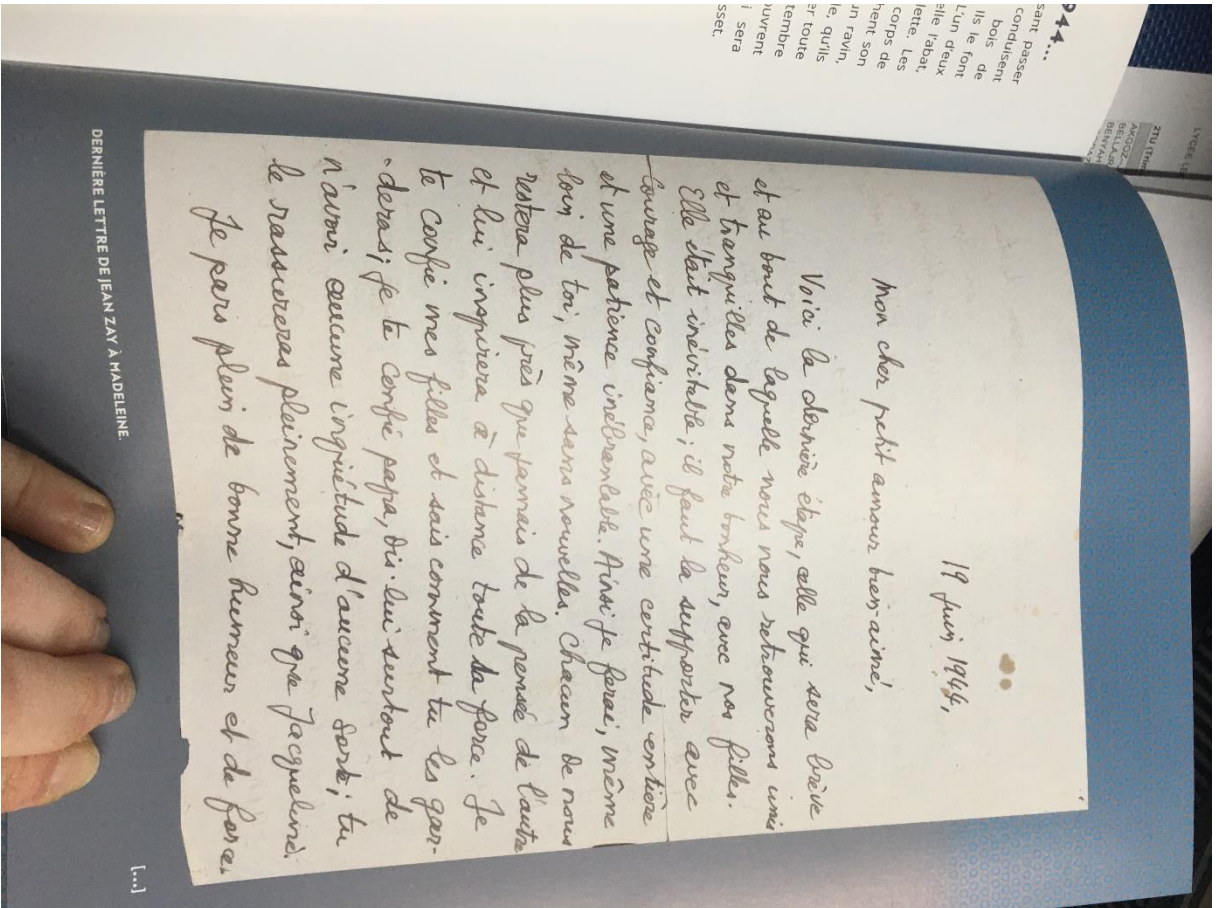 944...
sant passer
conduisent
bois de
Ils le font
L'un d'eux
elle l'abat,
lette. Les
corps de
hent son
un ravin,
le, qu'ils
er toute
tembre
ouvrent
i sera
sset.
LYCÉE
2TU
AKGOZ
BELLAJ
BENYAH
19 juin 1944,
Mon cher petit amour bien-aimé,
Voici la dernière étape, celle qui sera brève
et au bout de laquelle nous nous retrouverons unis
et tranquilles dans notre bonheur, avec nos filles.
Elle était inévitable ; il faut la supporter avec
courage et confiance, avec une certitude entière
et une patience inébranlable. Ainsi je ferai, même
loin de toi, même sans nouvelles. Chacun de nous
restera plus près que jamais de la pensée de l'autre
et lui inspirera à distance toute sa force. Je
te confie mes filles et sais comment tu les gar-
deras ; je te confie papa, dis-lui surtout de
n'avoir aucune inquiétude d'aucune sorte ; tu
le rassureras pleinement, ainsi que Jacqueline.
Je pars plein de bonne humeur et de force.
[...]
DERNIÈRE LETTRE DE JEAN ZAY À MADELEINE.